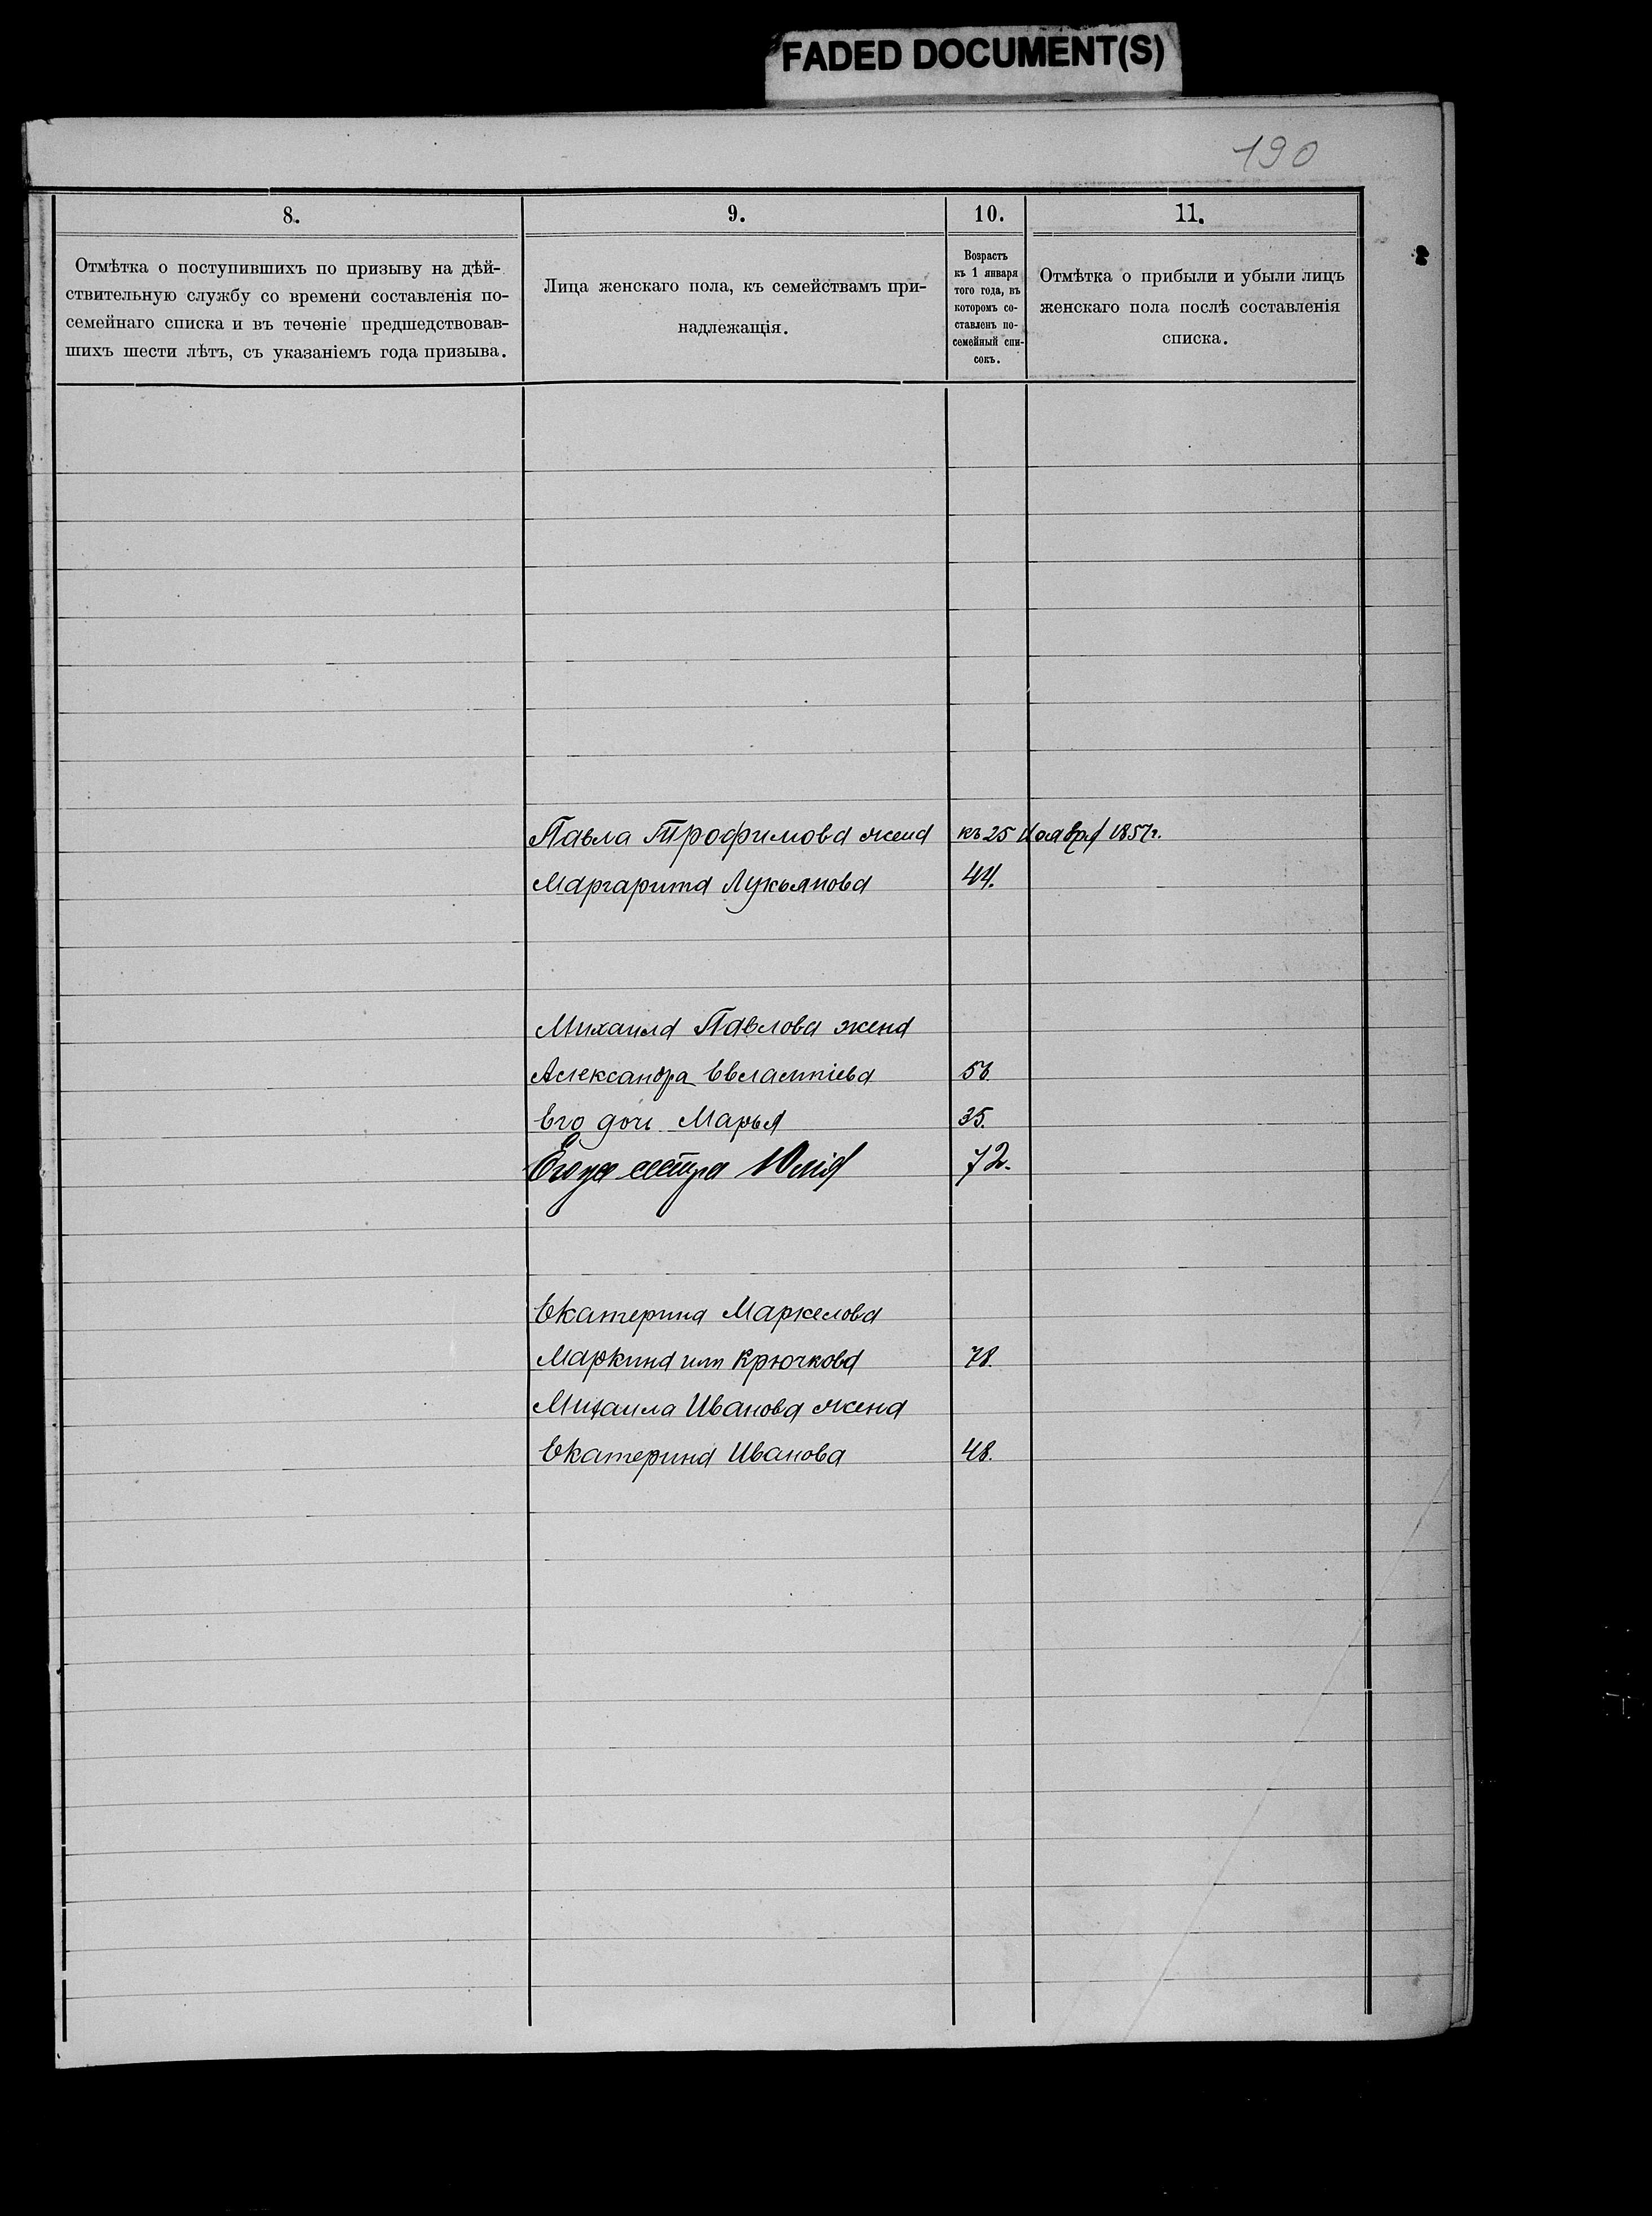 FADED DOCUMENT(S)
190
8.
9.
10.
11.
Отмѣтка о поступившихъ по призыву на дѣй-
ствительную службу со времени составленія по-
семейнаго списка и въ теченіе предшедствовав-
шихъ шести лѣтъ, съ указаніемъ года призыва.
Лица женскаго пола, къ семействамъ при-
надлежащія.
Возрастъ
къ 1 января
того года, въ
которомъ со-
ставленъ по-
семейный спи-
сокъ.
Отмѣтка о прибыли и убыли лицъ
женскаго пола послѣ составленія
списка.
Павла Трофимова жена къ 25 Ноября 1857г.
Маргарита Лукьянова 44.
Михаила Павлова жена
Александра Евлампіева
Его дочь Марья 35.
Его же сестра Юлія 72.
Екатерина Маркелова
Маркина или Крючкова 78.
Михаила Иванова жена
Екатерина Иванова 48.